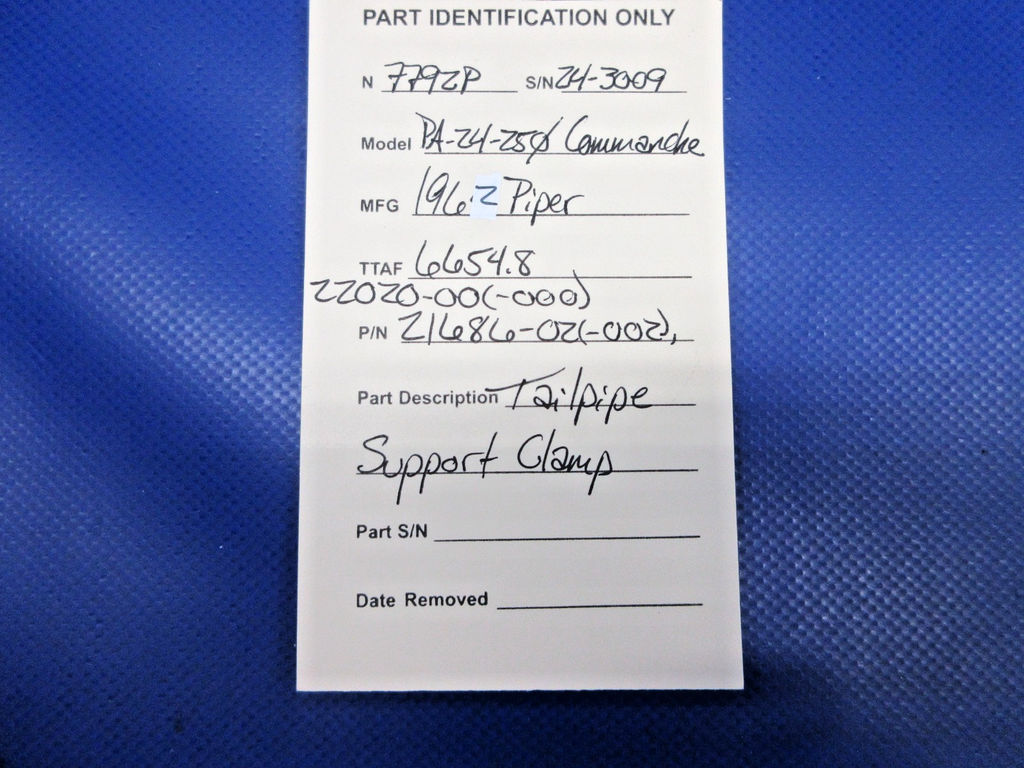 PART IDENTIFICATION ONLY
N 7792P S/N 24-3009
Model PA-24-250 Commanche
MFG 1962 Piper
TTAF 6654.8
22020-00(-000)
P/N 21686-02(-002),
Part Description Tailpipe
Support Clamp
Part S/N
Date Removed